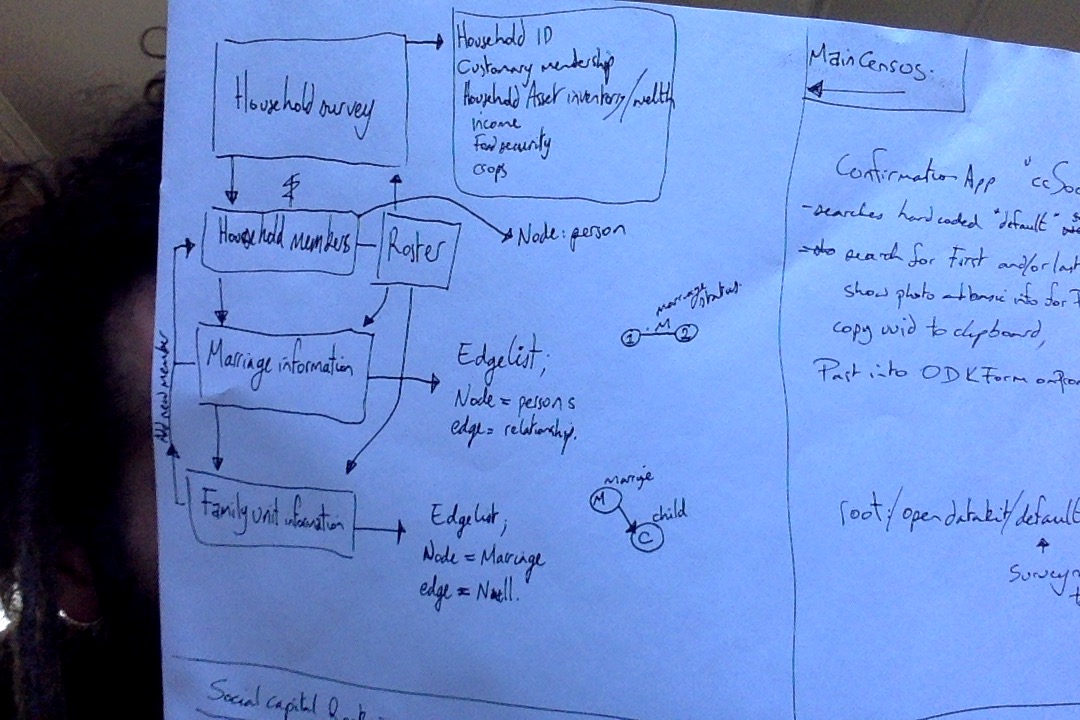 Household survey
Household ID
Customary membership
Household Asset inventory/wealth
income
Food security
crops
Household members
Roster
Node: person
Marriage information
Edgelist;
Node = persons
edge = relationship.
marriage status.
1 M 2
Add new member
Family unit information
Edgelist;
Node = Marriage
edge = Null.
marrige
M
child
C
Social capital
Main Census.
Confirmation App "ccSoc
- searches hardcoded "default"
search for First and/or last
show photo basic info for
copy uuid to clipboard,
Past into ODK Form on
root:/opendatakit/default
Survey